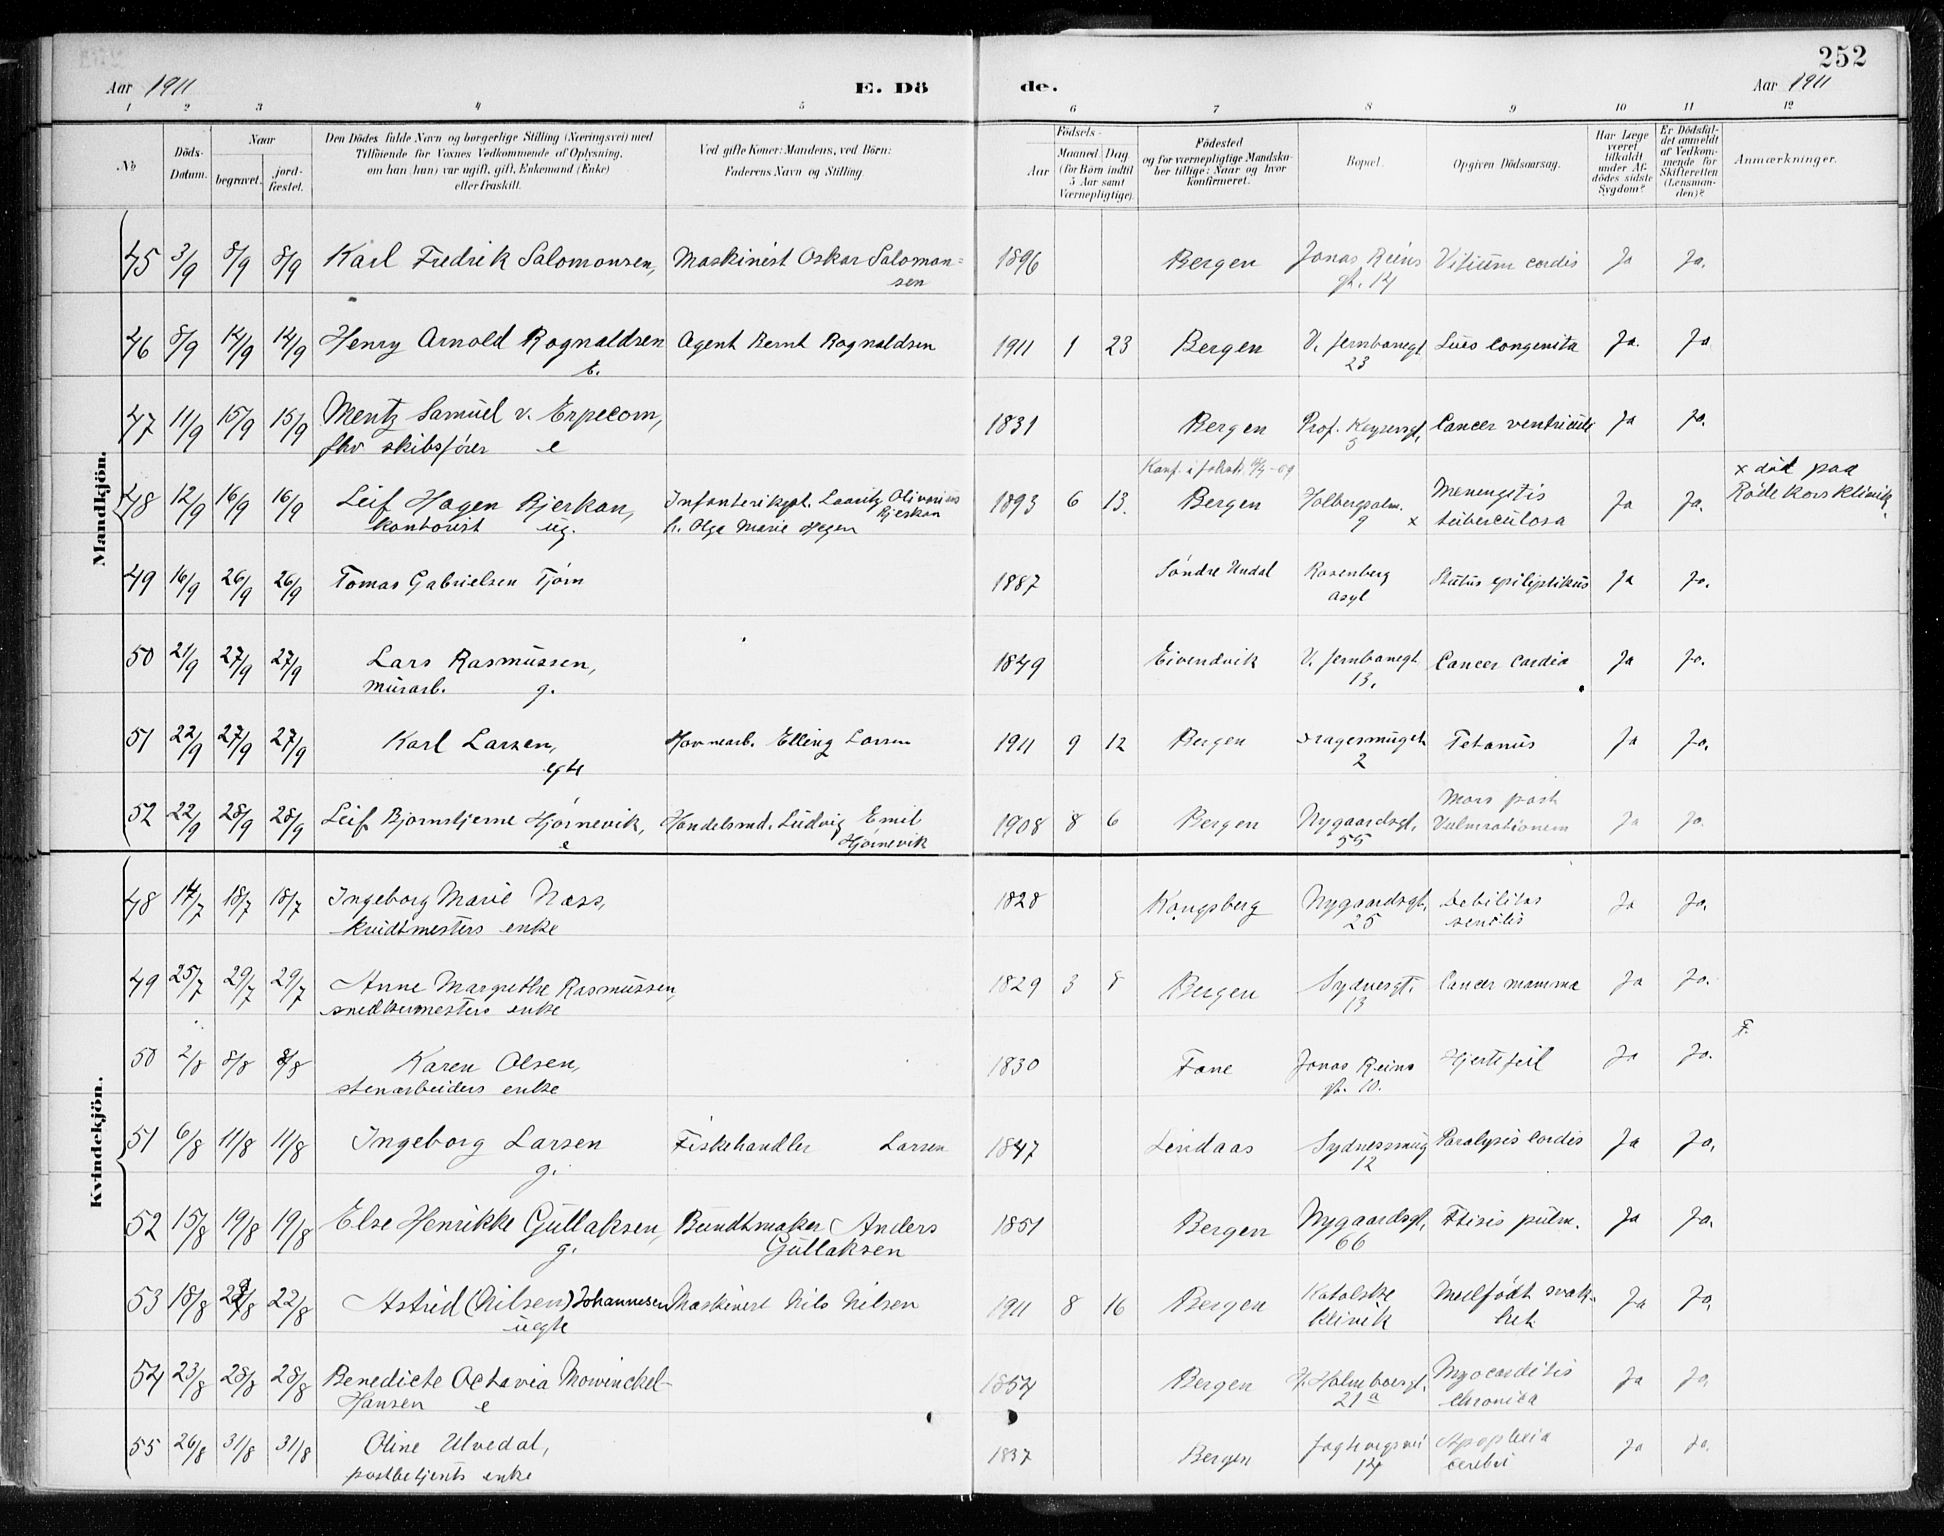 252
Aar 1911 E. Dö de. Aar 1911
1 2 3 4 5 6 7 8 9 10 11 12
№
Döds-Datum.
Naar
begravet. jord-fæstet.
Den Dödes fulde Navn og borgerlige Stilling (Næringsvei) med
Tilföiende for Voxnes Vedkommende af Oplysning,
om han (hun) var ugift, gift, Enkemand (Enke)
eller fraskilt.
Ved gifte Koner: Mandens, ved Börn:
Faderens Navn og Stilling.
Födsels-
Aar
Maaned Dag
(for Børn indtil
5 Aar samt
Værnepligtige).
Födested
og for værnepligtige Mandska-
ber tillige: Naar og hvor
konfirmeret.
Bopæl.
Opgiven Dödsaarsag.
Har Læge
været
tilkaldt
under Af-
dödes sidste
Sygdom?
Er Dödsfal-
det anmeldt
af Vedkom-
mende for
Skifteretten
(Lensman-
den)?
Anmærkninger.
Mandkjön.
45 3/9 8/9 8/9 Karl Fredrik Salomonsen, Maskinist Oskar Salomon=
sen
1896 Bergen Jonas Reins
gt. 14
Vitium cordis Ja Ja.
46 8/9 14/9 14/9 Henry Arnold Rognaldsen
e.
Agent Bernt Rognaldsen 1911 1 23 Bergen V. Jernbanegt
23
Lues congenita Ja. Ja
47 11/9 15/9 15/9 Mentz Samuel v. Erpecom,
fhv skibsfører e
1831 Bergen Prof. Keysersgt,
5
Cancer ventriculi Ja Ja.
48 12/9 16/9 16/9 Leif Hagen Bjerkan,
kontorist ug.
Infanterikapt. Lauritz Olivarius
Bjerkan
h. Olga Marie Hagen
1893 6 13. Konf. i Johsk
Bergen
Holbergsalm.
9 x
Menengitis
tuberculosa
Ja Ja.
x död paa
Röde Kors klinik.
49 16/9 26/9 26/9 Tomas Gabrielsen Tjøm 1887 Søndre Undal Rosenberg
asyl
Status epileptikus Ja Ja.
50 21/9 27/9 27/9 Lars Rasmussen,
murarb. g.
1849 Eivendvik V. Jernbanegt
13.
Cancer cardia Ja Ja.
51 22/9 27/9 27/9 Karl Larsen,
egte
Havnearb. Elling Larsen 1911 9 12 Bergen Dragesmuget
2
Tetanus Ja Ja.
52 22/9 28/9 28/9 Leif Bjørnstjerne Hjørnevik,
e
Handelsmd. Ludvig Emil
Hjørnevik
1908 8 6 Bergen Nygaardsgt.
55
Mors post
Vulnrationem
Ja Ja.
Kvindekjön.
48 14/7 18/7 18/7 Ingeborg Marie Næss,
kvidtmesters enke
1828 Kongsberg Nygaardsgt.
25
Debilitas
senilis
Ja Ja.
49 25/7 29/7 29/7 Anne Margrethe Rasmussen,
snedkermesters enke
1829 3 8 Bergen Sydnesgt.
13
Cancer mamma Ja Ja.
50 2/8 8/8 8/8 Karen Olsen,
stenarbeiders enke
1830 Fane Jonas Reins
gt. 10.
Hjertefeil Ja Ja. F.
51 6/8 11/8 11/8 Ingeborg Larsen
g.
Fiskehandler Larsen 1847 Lindaas Sydnessmug
12
Paralysis cordis Ja Ja.
52 15/8 19/8 19/8 Else Henrikke Gullaksen,
g.
Bundtmaker Anders
Gullaksen
1851 Bergen Nygaardsgt.
66
Ftisis pulm. Ja Ja.
53 18/8 22/8 22/8 Astrid (Nilsen) Johannesen
uegte
Maskinist Nils Nilsen 1911 8 16 Bergen Katolske
klinik
Medfødt svak-
het
Ja Ja.
54 23/8 28/8 28/8 Benedicte Octavia Mowinckel-
Hansen e
1854 Bergen H. Holmboesgt.
21a
Myocarditis
chronica
Ja Ja.
55 26/8 31/8 31/8 Oline Ulvedal,
postbetjents enke
1837 Bergen Jagtvegsvei
14
Apoplexia
cerebri
Ja Ja.